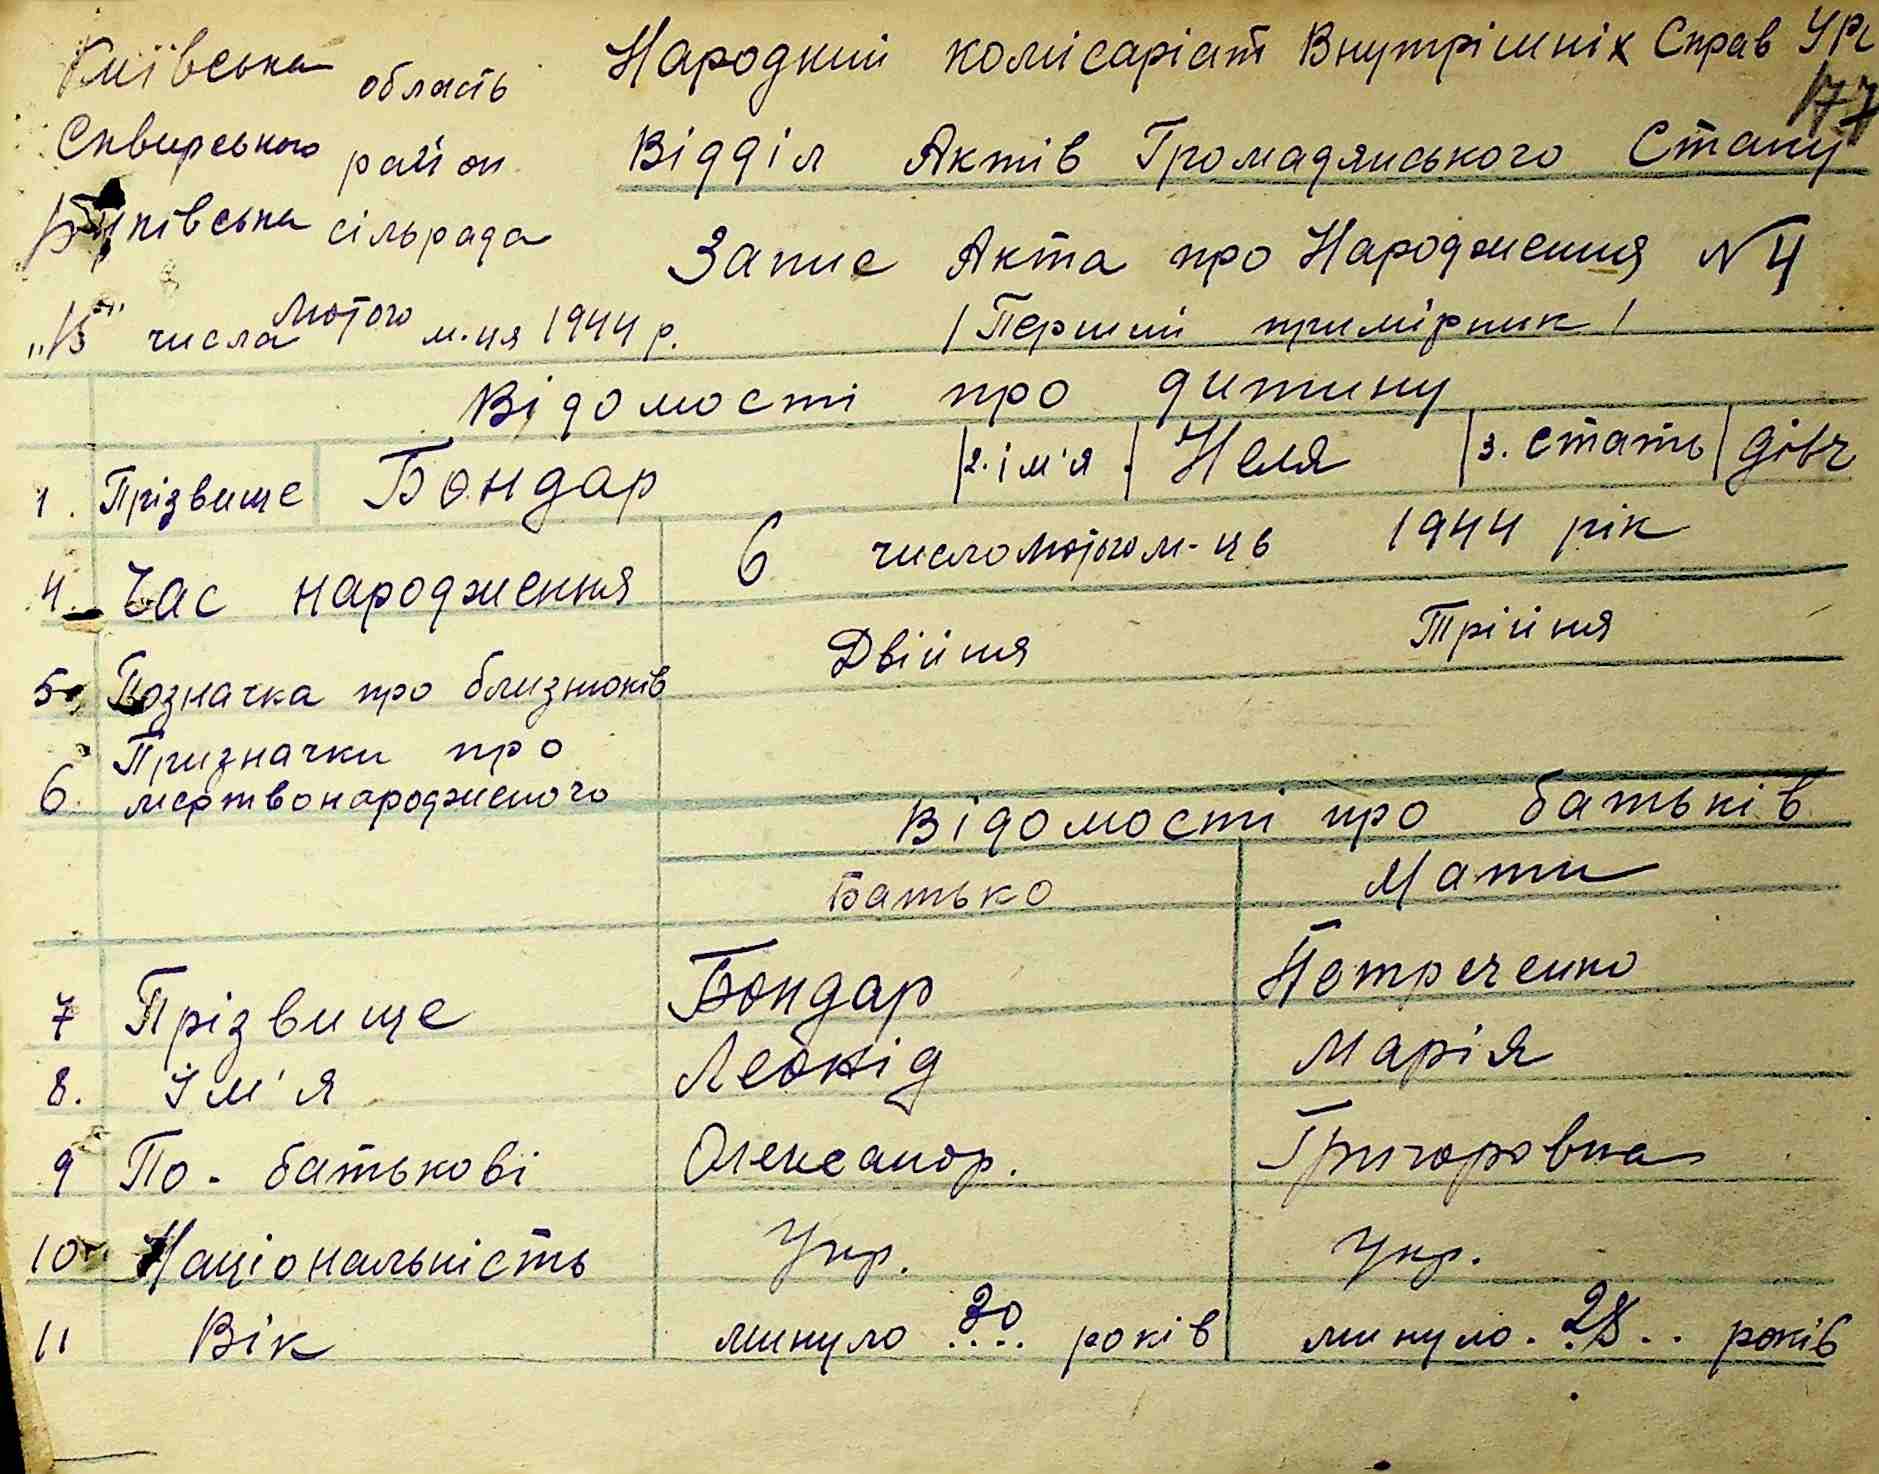 Київська область
Сквирського район
сільрада
"15" числа Лютого м-ця 1944 р.
Народний комісаріат Внутрішніх Справ УРС
177
Відділ Актів Громадянського Стану
Запис Акта про Народження № 4
/ Перший примірник /
Відомості про дитину
1. Прізвище Бондар 2. ім'я Неля 3. стать дівч
4. Час народження 6 число Лютого м-ць 1944 рік
5. Позначка про близнюків Двійня Трійня
Призначки про
6. мертвонародженого
Відомості про батьків
Батько Мати
7 Прізвище Бондар Петреченко
8. Ім'я Леонід Марія
9 По-батькові Олександр. Григоровна
10 Національність Укр. Укр.
11 Вік минуло 30 років минуло 28 років